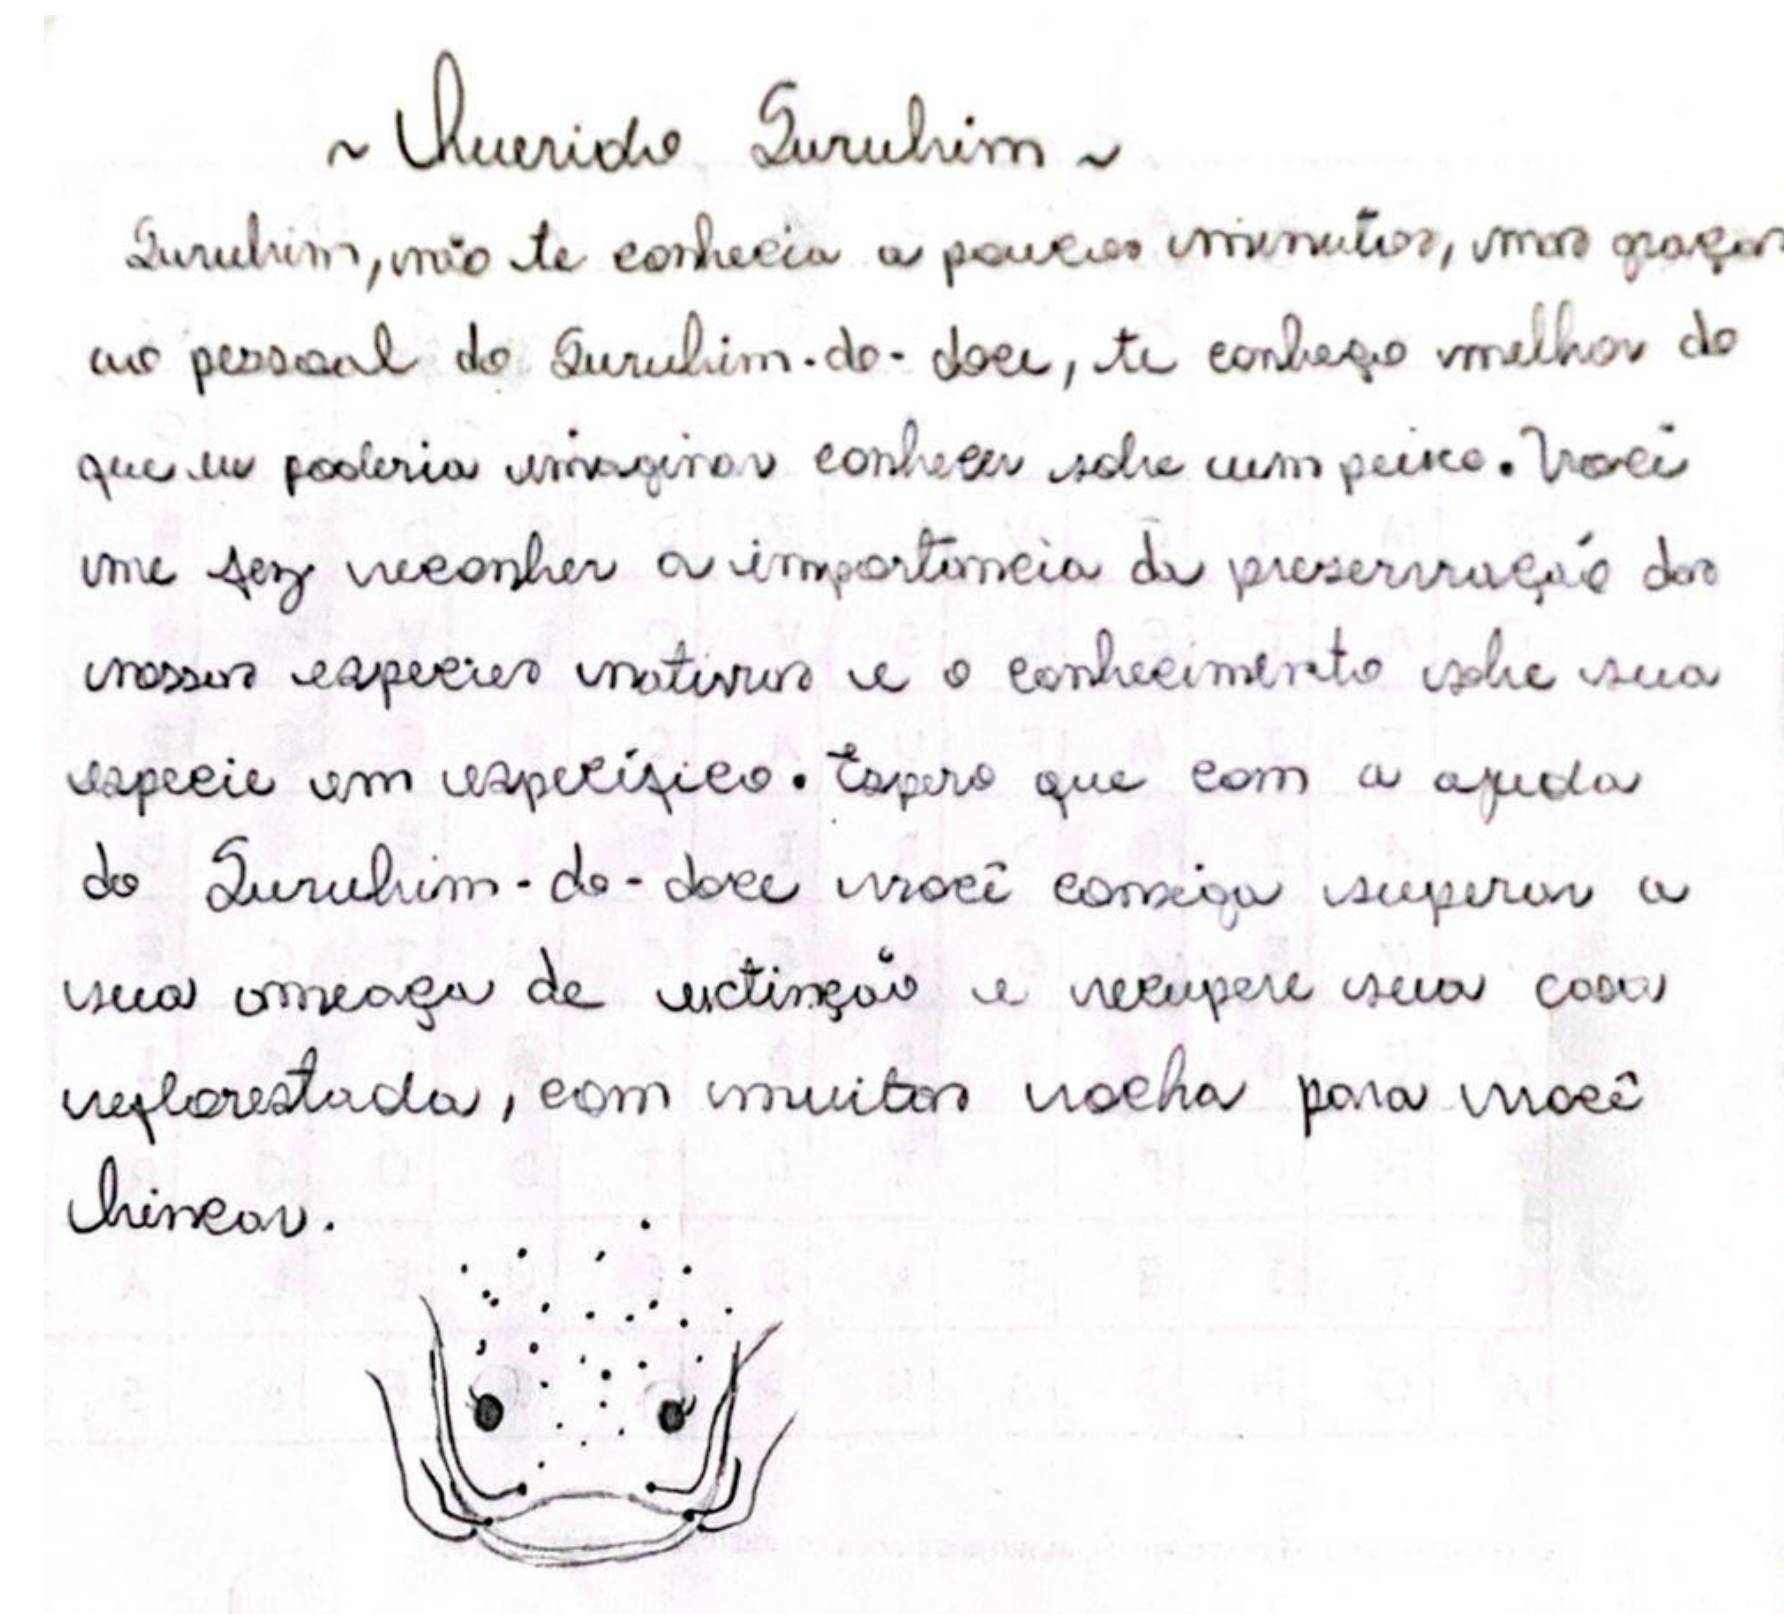 ~ Querido Surubim ~
Surubim, não te conhecia a poucos minutos, mas graças
ao pessoal do Surubim-do-doce, te conheço melhor do
que eu poderia imaginar conhecer sobre um peixe. Você
me fez reconher a importancia da preservação das
nossas especies nativas e o conhecimento sobre sua
especie em específico. Espero que com a ajuda
do Surubim-do-doce você consiga superar a
sua ameaça de extinção e recupere sua casa
reflorestada, com muitas rocha para você
brincar.